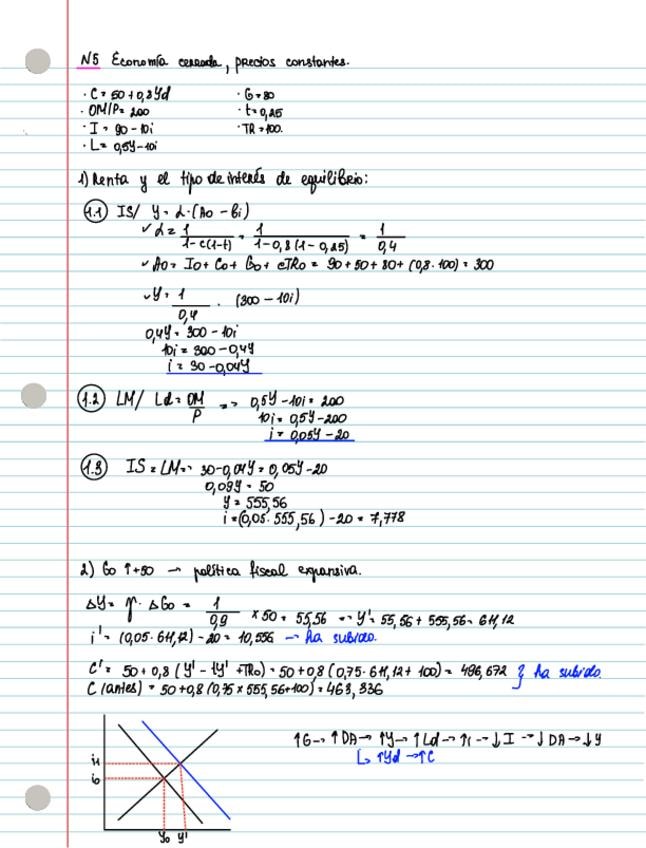 N5 Economía cerrada, precios constantes.
· C = 50 + 0,8Yd
· G = 80
· OM/P = 200
· t = 0,25
· I = 90 - 10i
· TR = 100.
· L = 0,5Y - 10i
1) Renta y el tipo de interés de equilibrio:
1.1 IS/ Y = α · (A0 - bi)
✓ α = 1/1-c(1-t) = 1/1-0,8(1-0,25) = 1/0,4
✓ A0 = I0 + C0 + G0 + cTR0 = 90 + 50 + 80 + (0,8 · 100) = 300
✓ Y = 1/0,4 · (300 - 10i)
0,4Y = 300 - 10i
10i = 300 - 0,4Y
i = 30 - 0,04Y
1.2 LM/ Ld = OM/P => 0,5Y - 10i = 200
10i = 0,5Y - 200
i = 0,05Y - 20
1.3 IS = LM => 30 - 0,04Y = 0,05Y - 20
0,09Y = 50
Y = 555,56
i = (0,05 · 555,56) - 20 = 7,778
2) Go ↑ +50 → política fiscal expansiva.
ΔY = γ · ΔGo = 1/0,9 × 50 = 55,56 => Y' = 55,56 + 555,56 = 611,12
i' = (0,05 · 611,12) - 20 = 10,556 → ha subido.
C' = 50 + 0,8 (Y' - tY' + TRo) = 50 + 0,8 (0,75 · 611,12 + 100) = 496,672 } ha subido.
C (antes) = 50 + 0,8 (0,75 × 555,56 + 100) = 463,336
↑G → ↑DA → ↑Y → ↑Ld → ↑i → ↓I → ↓DA → ↓Y
↳ ↑Yd → ↑C
i1
i0
Y0 Y'